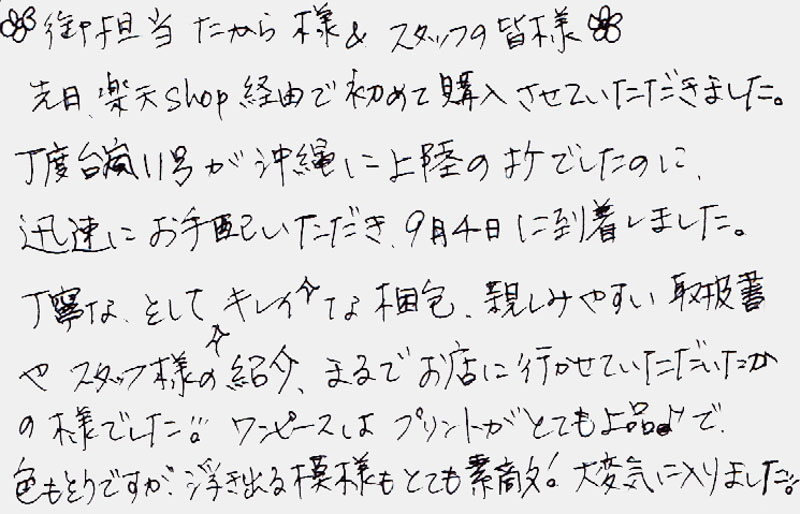 御担当 たから様& スタッフの皆様
先日、楽天shop経由で初めて購入させていただきました。
丁度台風11号が沖縄に上陸の時でしたのに、
迅速にお手配いただき、9月4日に到着しました。
丁寧な、そしてキレイな梱包、親しみやすい取扱書
やスタッフ様の紹介、まるでお店に行かせていただいたか
の様でした!! ワンピースはプリントがとても上品♪で、
色もそうですが、浮き出る模様もとても素敵!大変気に入りました!!